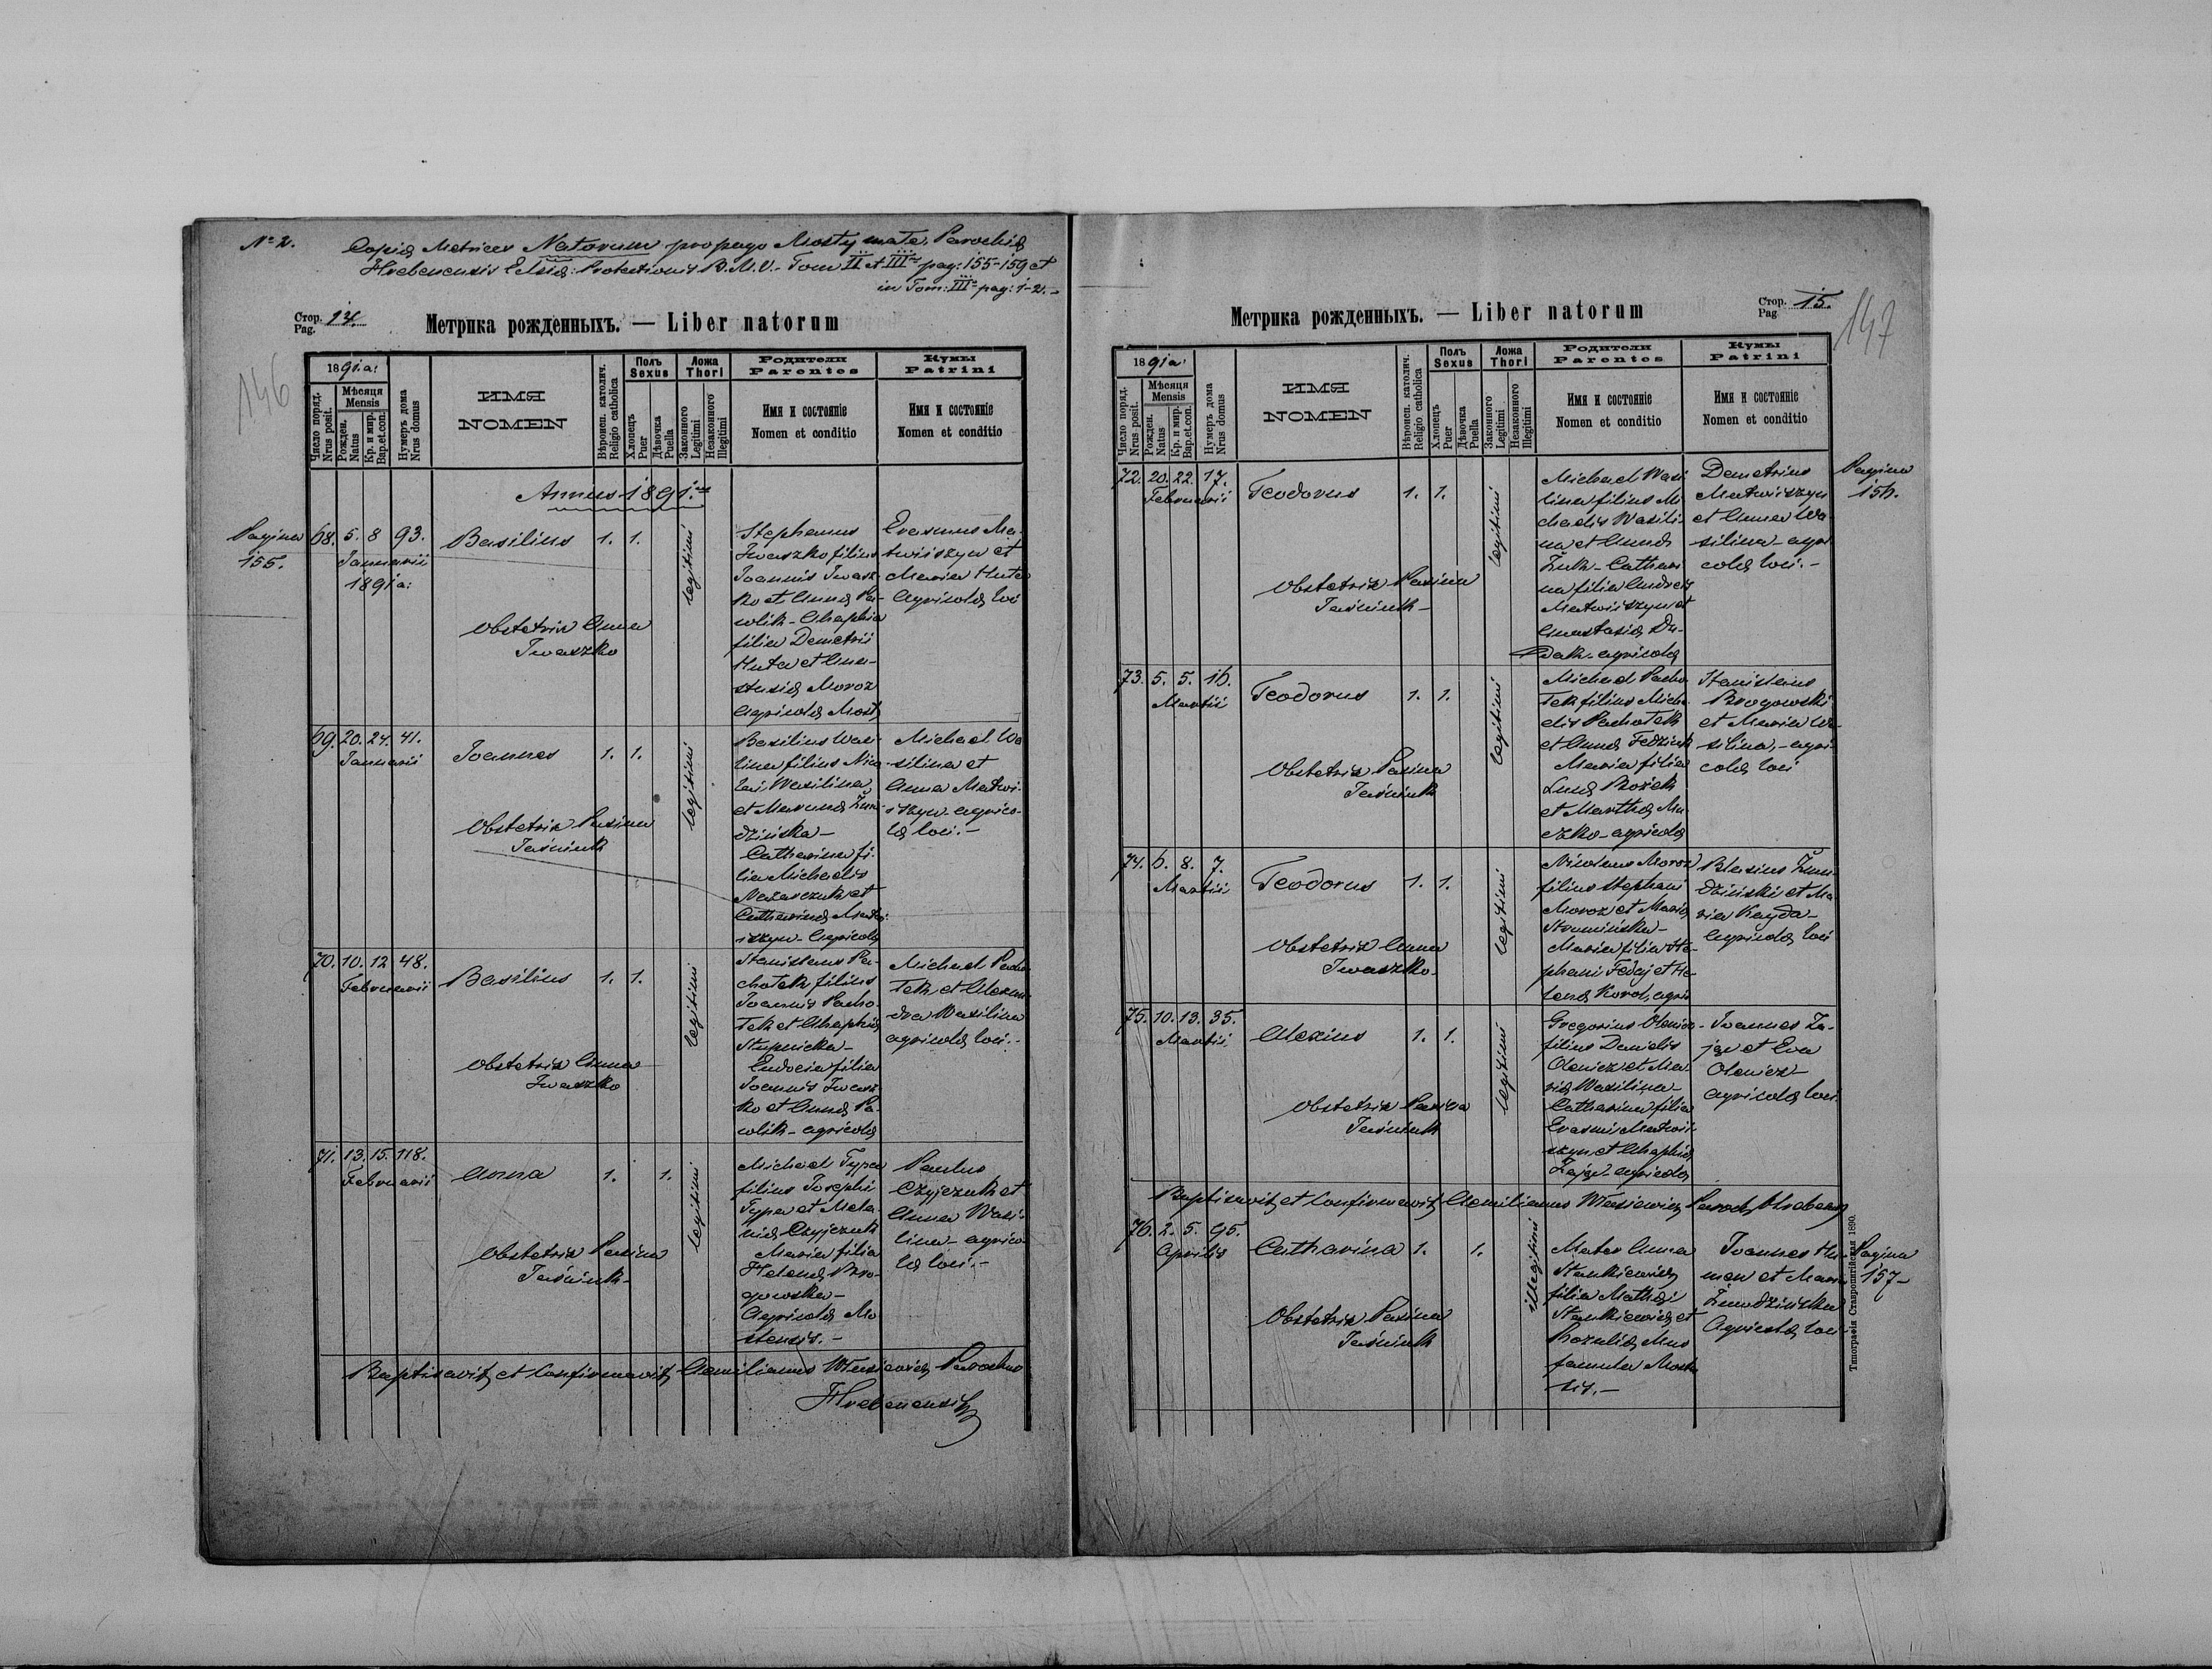 № 2.
Copia Metrices Natorum pro pago Mosty mate. Parochiæ
Hrebenensis Eclsiæ: Protectionis B.M.V. Tom II et III pag: 155-159 et
in Tom: III pag: 1-2.
Стор. Pag. 14.
Метрика рожденныхъ. — Liber natorum
146
1891 a:
Число поряд. Nrus posit.
Мѣсяця Mensis
Рожден. Natus
Кр. и мир. Bap.et.con.
Нумеръ дома Nrus domus
ИМЯ
NOMEN
Вѣроисп. католич. Religio catholica
Полъ Sexus
Хлопецъ Puer
Дѣвочка Puella
Ложа Thori
Законного Legitimi
Незаконного Illegitimi
Родители
Parentes
Имя и состоянiе
Nomen et conditio
Кумы
Patrini
Имя и состоянiе
Nomen et conditio
Annus 1891.
Pagina 155.
68. 5. 8 93.
Januarii
1891 a:
Basilius 1. 1.
legitimi
Obstetrix Anna
Iwaszko
Stephanus
Iwaszko filius
Joannis Iwasz-
ko et Annæ Pa-
wlik - Ahaphia
filia Demetrii
Huta et Ana-
stasiæ Moroz
Agricolæ Mosty
Erasmus Ma-
twiiszyn et
Maria Huta
Agricolæ loci
69. 20. 24. 41.
Januarii
Joannes 1. 1.
legitimi
Obstetrix Paxima
Jaśniuk
Basilius Wasi-
lina filius Nico-
lai Wasilina
et Mariannæ Żmu-
dzińska -
Catharina fi-
lia Michaelis
Nazarczuk et
Catharinæ Matwi-
iszyn - Agricolæ
Michael Wa-
silina et
Anna Matwi-
iszyn - agrico-
læ loci. -
70. 10. 12 48.
Februarii
Basilius 1. 1.
legitimi
Obstetrix Anna
Iwaszko
Stanislaus Pa-
chotek filius
Joannis Pacho-
tek et Ahaphiæ
Stupnicka -
Eudocia filia
Joannis Iwasz-
ko et Annæ Pa-
wlik - agricolæ
Michael Pacho-
tek et Alexan-
dra Wasilina
agricolæ loci. -
71. 13. 15. 118.
Februarii
Anna 1. 1.
legitimi
Obstetrix Paxima
Jaśniuk -
Michael Typa
filius Josephi
Typa et Mela-
niæ Czyjczuk
Maria filia
Helenæ Bro-
gowska -
Agricolæ Mo-
stensis. -
Paulus
Czyjczuk et
Anna Wasi-
lina - agrico-
læ loci. -
Baptisavit et Confirmavit Aemilianus Własiewicz Parochus
Hrebenensis
Метрика рожденныхъ. — Liber natorum
Стор. Pag 15.
147
1891 a:
Число поряд. Nrus posit.
Мѣсяця Mensis
Рожден. Natus
Кр. и мир. Bap.et.con.
Нумеръ дома Nrus domus
ИМЯ
NOMEN
Вѣроисп. католич. Religio catholica
Полъ Sexus
Хлопецъ Puer
Дѣвочка Puella
Ложа Thori
Законного Legitimi
Незаконного Illegitimi
Родители
Parentes
Имя и состоянiе
Nomen et conditio
Кумы
Patrini
Имя и состоянiе
Nomen et conditio
72. 20. 22. 17.
Februarii
Teodorus 1. 1.
legitimi
Obstetrix Paxima
Jaśniuk -
Michael Wasi-
lina filius Mi-
chaelis Wasili-
na et Annæ
Żuk - Cathari-
na filia Andreæ
Matwiiszyn et
Anastasiæ Du-
dak - agricolæ
Demetrius
Matwiiszyn
et Anna Wa-
silina - agri-
colæ loci. -
Pagina
156.
73. 5. 5. 16.
Martii
Teodorus 1. 1.
legitimi
Obstetrix Paxima
Jaśniuk
Michael Pacho-
tek filius Micha-
elis Pachotek
et Annæ Fedziuk
Maria filia
Lucæ Rożek
et Marthæ Mu-
czko - agricolæ
Stanislaus
Brogowski
et Maria Wa-
silina, - agri-
colæ loci
74. 6. 8. 7.
Martii
Teodorus 1. 1.
legitimi
Obstetrix Anna
Iwaszko.
Nicolaus Moroz
filius Stephani
Moroz et Mariæ
Strumińska -
Maria filia Ste-
phani Fedaj et He-
lenæ Korol, agri-
Blasius Żmu-
dziński et Ma-
ria Kayda -
Agricolæ loci
75. 10. 13. 35.
Martii
Alexius 1. 1.
legitimi
Obstetrix Paxima
Jaśniuk
Gregorius Olenicz
filius Danielis
Olenicz et Ma-
riæ Wasilina -
Catharina filia
Erasmi Matwii-
szyn et Ahaphiæ
Zając - agricolæ
Joannes Za-
jąc et Eva
Olenicz -
agricolæ loci.
Baptisavit et Confirmavit Aemilianus Własiewicz Paroch. Hrebenen.
76. 2. 5. 95.
Aprilis
Catharina 1. 1.
illegitimi
Obstetrix Paxima
Jaśniuk
Mater Anna
Stankiewicz
filia Mathæi
Stankiewicz et
Rozaliæ Mus
famula Mosten-
sis. -
Joannes Hu-
men et Maria
Żmudzińska
Agricolæ loci
Pagina
157 -
Типографія Ставропигійская 1890.